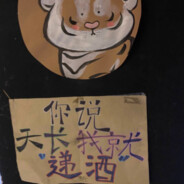 你说
天长我就
递酒